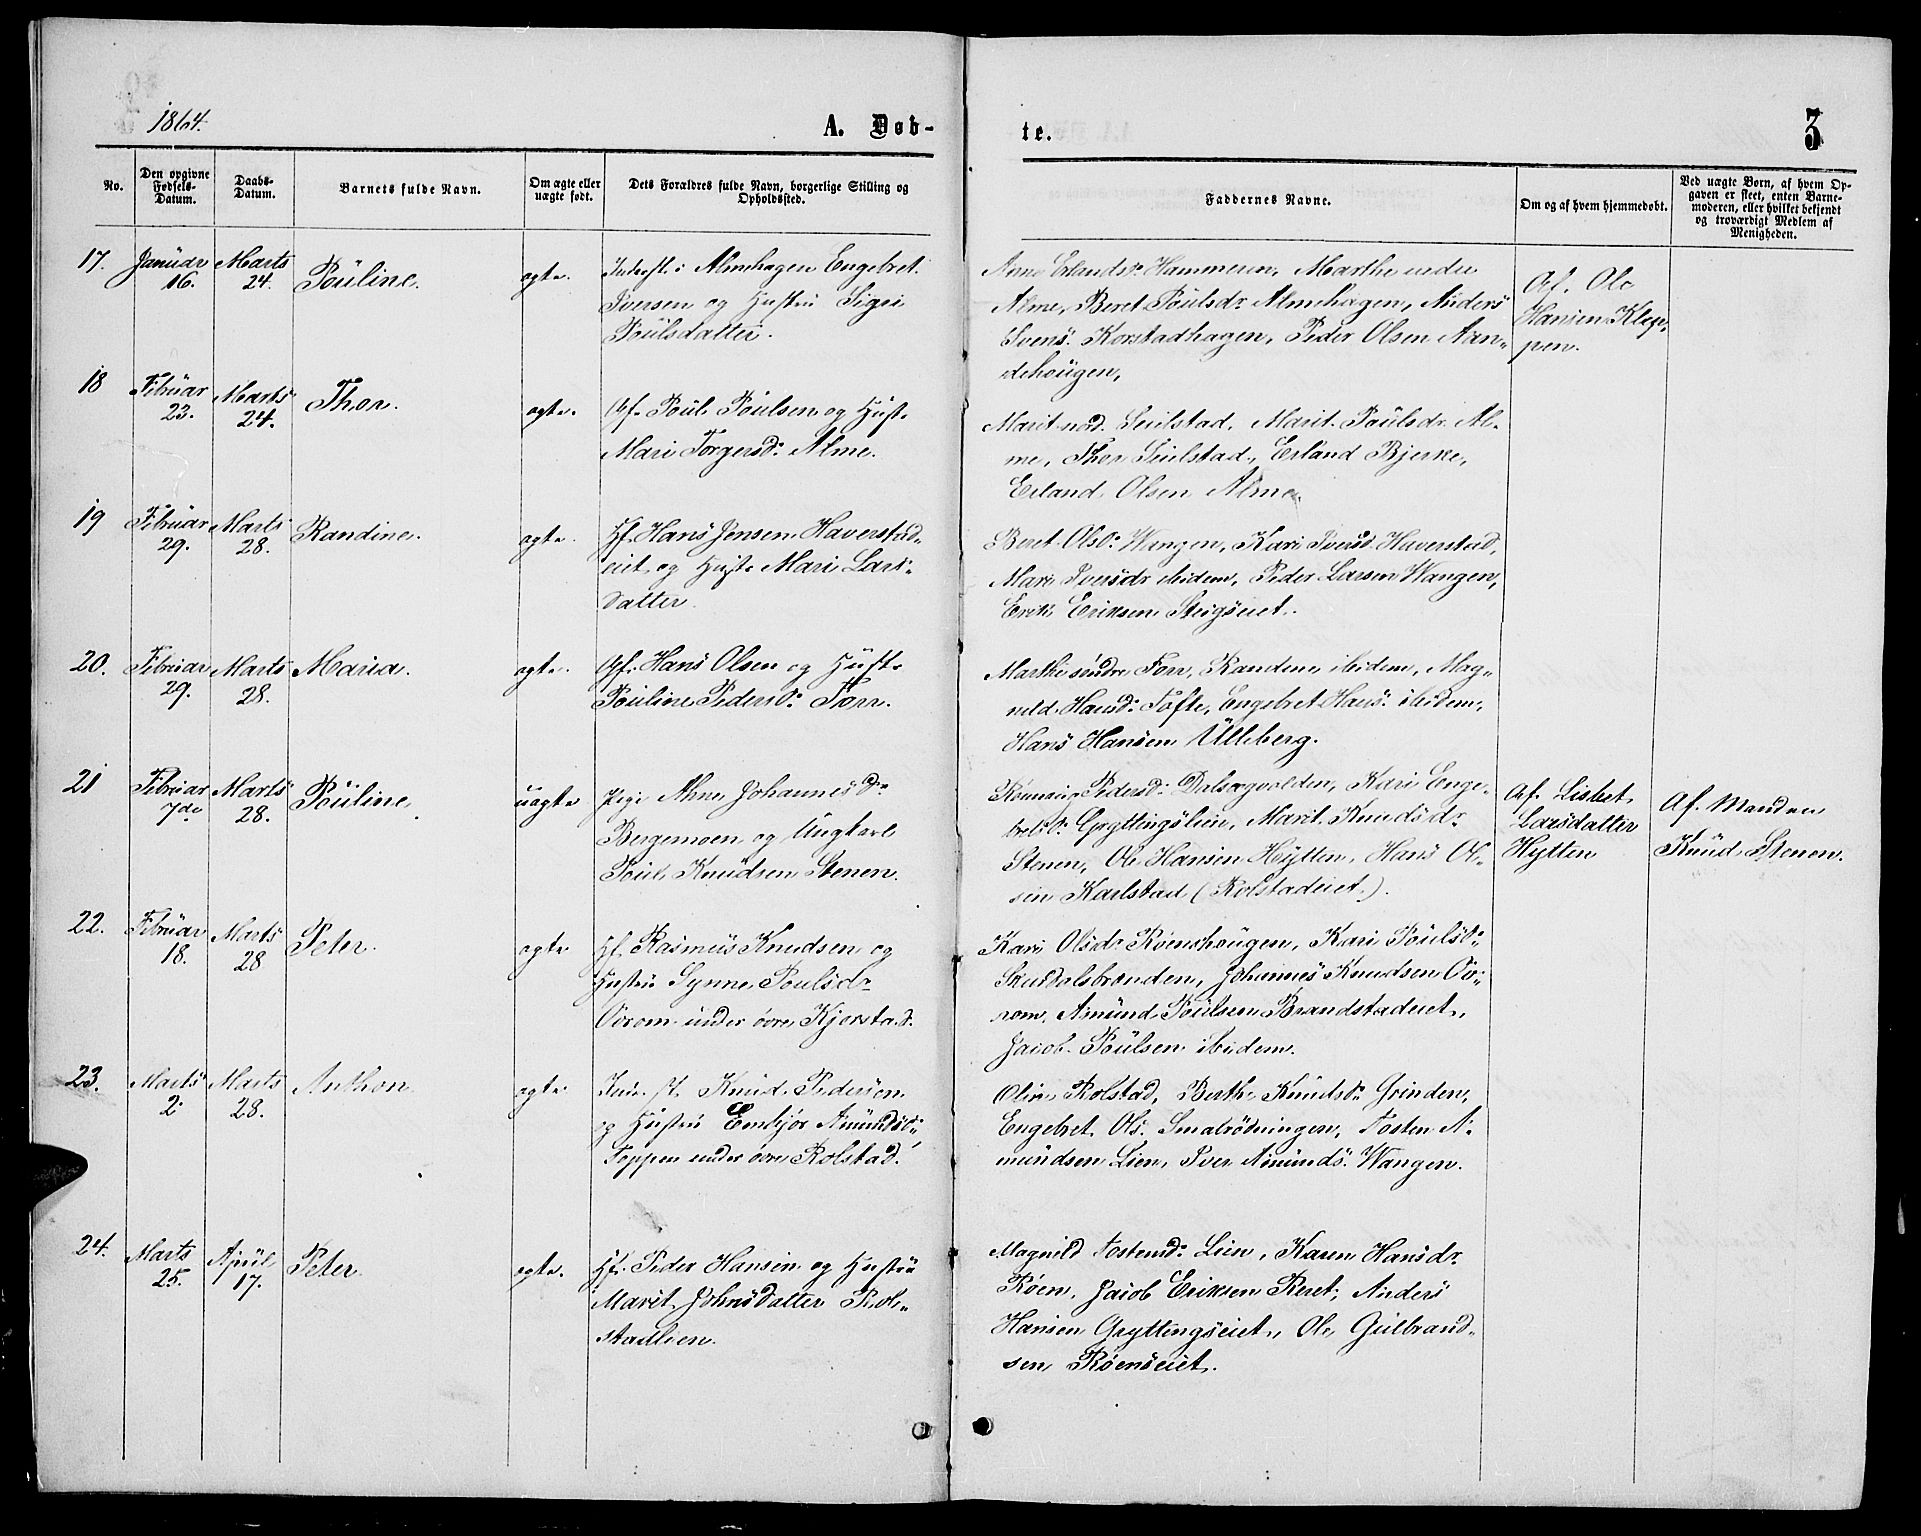 1864.
A. Døb-
te.
3
No.
Den opgivne
Fødsels-
Datum.
Daabs-
Datum.
Barnets fulde Navn.
Om ægte eller
uægte født.
Dets Forældres fulde Navn, borgerlige Stilling og
Opholdssted.
Faddernes Navne.
Om og af hvem hjemmedøbt.
Ved uægte Børn, af hvem Op-
gaven er skeet, enten Barne-
moderen, eller hvilket bekjendt
og troværdigt Medlem af
Menigheden.
17. Januar
16.
Marts
24.
Pouline.
ægte.
Inderst. i Almehagen Engebret
Iversen og Hustru Sigri
Poulsdatter.
Arne Erlands. Hammeren, Marthe nedre
Alme, Beret Poulsdr Almehagen, Anders
Svens. Korstadhagen, Peder Olsen Aan-
dehougen,
Af. Ole
Hansen Klep-
pen.
18 Februar
23.
Marts
24.
Thor.
ægte.
Gf. Poul Poulsen og Hust.
Mari Torgersd. Alme.
Marit ned. Seielstad, Marit Poulsdr Al-
me, Thor Seielstad, Erland Bjerke,
Erland Olsen Alme.
19 Februar
29.
Marts
28.
Randine.
ægte.
Hf. Hans Jensen Haverstad-
eiet og Hust. Mari Lars-
datter.
Beret Olsd. Wangen, Kari Iversd. Haverstad,
Mari Iversdr ibidem, Peder Larsen Wangen,
Erik Eriksen Steigseiet.
20. Februar
29.
Marts
28.
Maria.
ægte.
Gf. Hans Olsen og Hust.
Pouline Pedersd. Forr.
Marthe søndre Forr, Randine ibidem, Mag-
nild Hansd. Tofte, Engebret Hans. ibidem,
Hans Hansen Ulleberg.
21 Februar
7de
Marts
28.
Pouline.
uægte
Pige Anne Johannesdr
Bergemoen og Ungkarl
Poul Knudsen Stenen.
Rønnaug Pedersd. Dalsegvolden, Kari Enge-
bretsd. Gryttingslien, Marit Knudsdr
Stenen, Ole Hansen Hytten, Hans Ol-
sen Karlstad (Rolstadeiet).
Af. Lisbet
Larsdatter
Hytten
Af. Manden
Knud Stenen.
22. Februar
18.
Marts
28
Peter.
ægte
Hf. Rasmus Knudsen og
Hustru Synne Poulsdr
Øvrom under øvre Kjorstad.
Kari Olsdr Røenshougen, Kari Poulsd.
Skurdalsbranden, Johannes Knudsen Øv-
rom, Amund Poulsen Brandstadeiet,
Jacob Poulsen ibidem.
23. Marts
2.
Marts
28.
Anthon
ægte
Knud Pedersen
og Hustru Embjør Amundsd.
Toppen under øvre Rolstad.
Oline Rolstad, Berthe Knudsd. Grinden,
Engebret Ols. Smalrødningen, Tosten A-
mundsen Lien, Iver Amunds. Wangen.
24. Marts
25.
April
17.
Peter.
ægte.
Hf. Peder Hansen og Hustru
Marit Johnsdatter Rol-
stadlien.
Magnild Tostensd. Lien, Karen Hansdr
Røen, Jacob Eriksen Reret, Anders
Hansen Gryttingseiet, Ole Gulbrand-
sen Røenseiet.